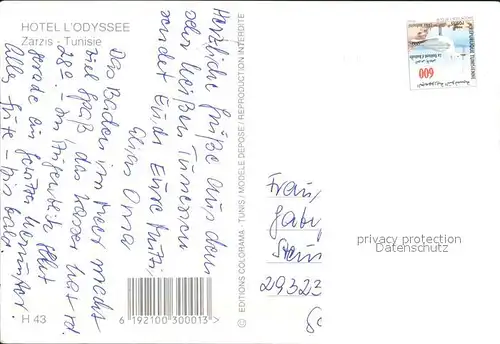 HOTEL L'ODYSSEE
Zarzis - Tunisie
Herzliche Grüße aus dem
sehr heißen Tunesien
sendet Euch Eure Mutti,
Oma
Das Baden im Meer macht
viel Spaß, das Wasser hat rd.
28° - im Augenblick
gerade ein
Alles Gute - bis bald.
H 43
6 192100 300013 >
© EDITIONS COLORAMA - TUNIS / MODELE DEPOSE / REPRODUCTION INTERDITE
REPUBLIQUE TUNISIENNE
600
Frau
Gabi
29323
privacy protection
Datenschutz